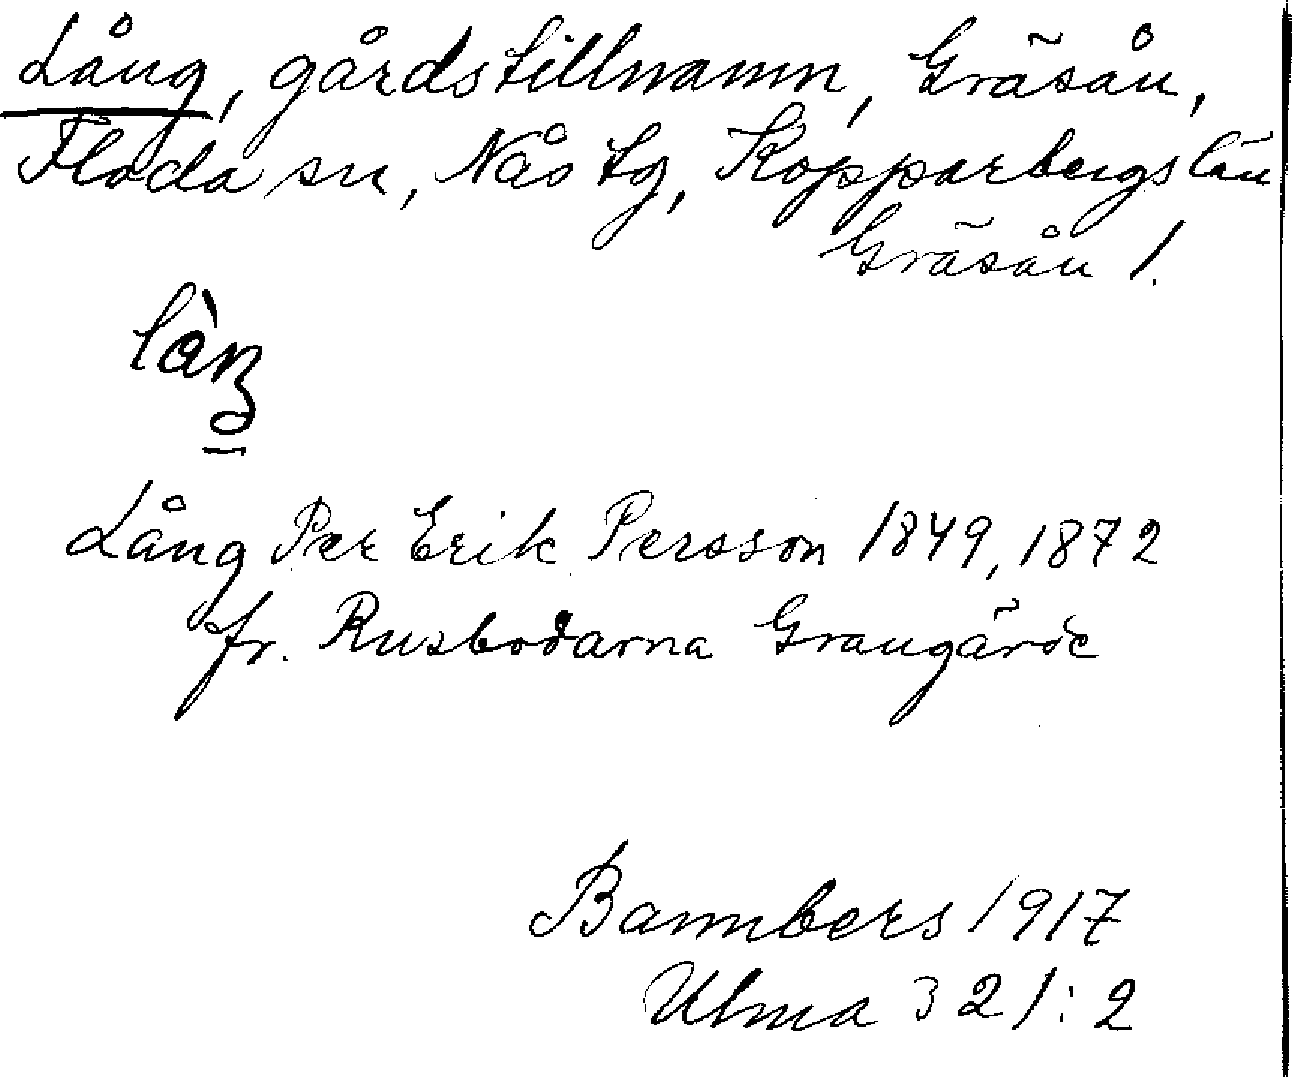 Lång, gårdstillnamn, Gräsån,
Floda sn, Nås tg, Kopparbergs län
Gräsån 1.
Lång Per Erik Persson 1849, 1872
fr. Rusbodarna Grangärde
Bannbers 1917
Ulma 321:2